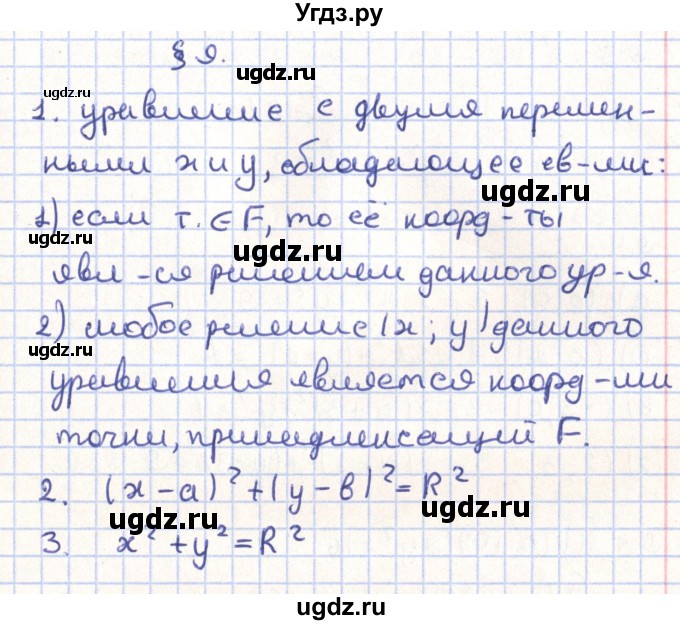 Угдз.ру
§ 9.
ugdz.ru
ugdz.ru
1. уравнение с двумя перемен-
ными x и y, обладающее св-ми:
ugdz.ru
1) если т. ∈ F, то её коорд-ты
ugdz.ru
явл-ся решением данного ур-я.
ugdz.ru
2) любое решение (x; y) данного
ugdz.ru
уравнения является коорд-ми
точки, принадлежащей F.
ugdz.ru
2. (x-a)²+(y-b)²=R²
ugdz.ru
ugdz.ru
3. x²+y²=R²
ugdz.ru